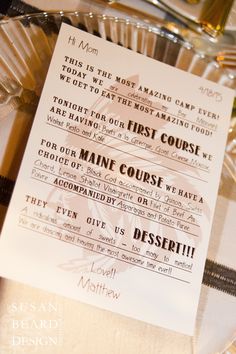 Hi Mom,
4/18/15
THIS IS THE MOST AMAZING CAMP EVER!
TODAY WE are celebrating my
WE GET TO EAT THE MOST AMAZING FOOD!
TONIGHT FOR OUR FIRST COURSE WE
ARE HAVING: Pasta a la Genovese, Goat Cheese Mousse,
Walnut Pesto and Kale
FOR OUR MAINE COURSE WE HAVE A
CHOICE OF: Black Cod accompanied by Quinoa, Swiss
Chard, Lemon Shallot Vinaigrette OR Filet of Beef Au
Poivre ACCOMPANIED BY Asparagus and Potato Puree
THEY EVEN GIVE US DESSERT!!!
A ridiculous amount of sweets - too many to mention!
We are dancing and having the most awesome time ever!!
Love!!
Matthew
SUSAN
BEARD
DESIGN